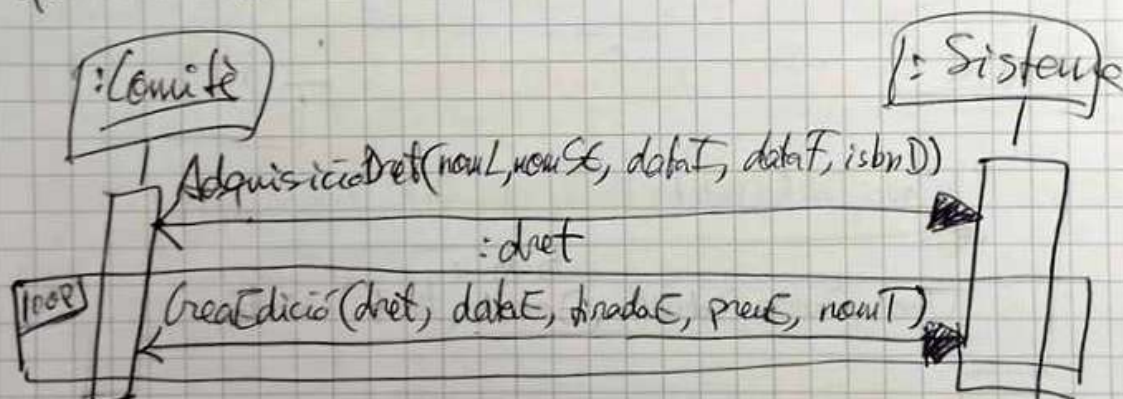 :Comitè
: Sistema
AdquisicióDret(nomL, nomSE, dataI, dataF, isbnD)
:dret
loop
CreaEdició(dret, dataE, tiradaE, preuE, nomT)